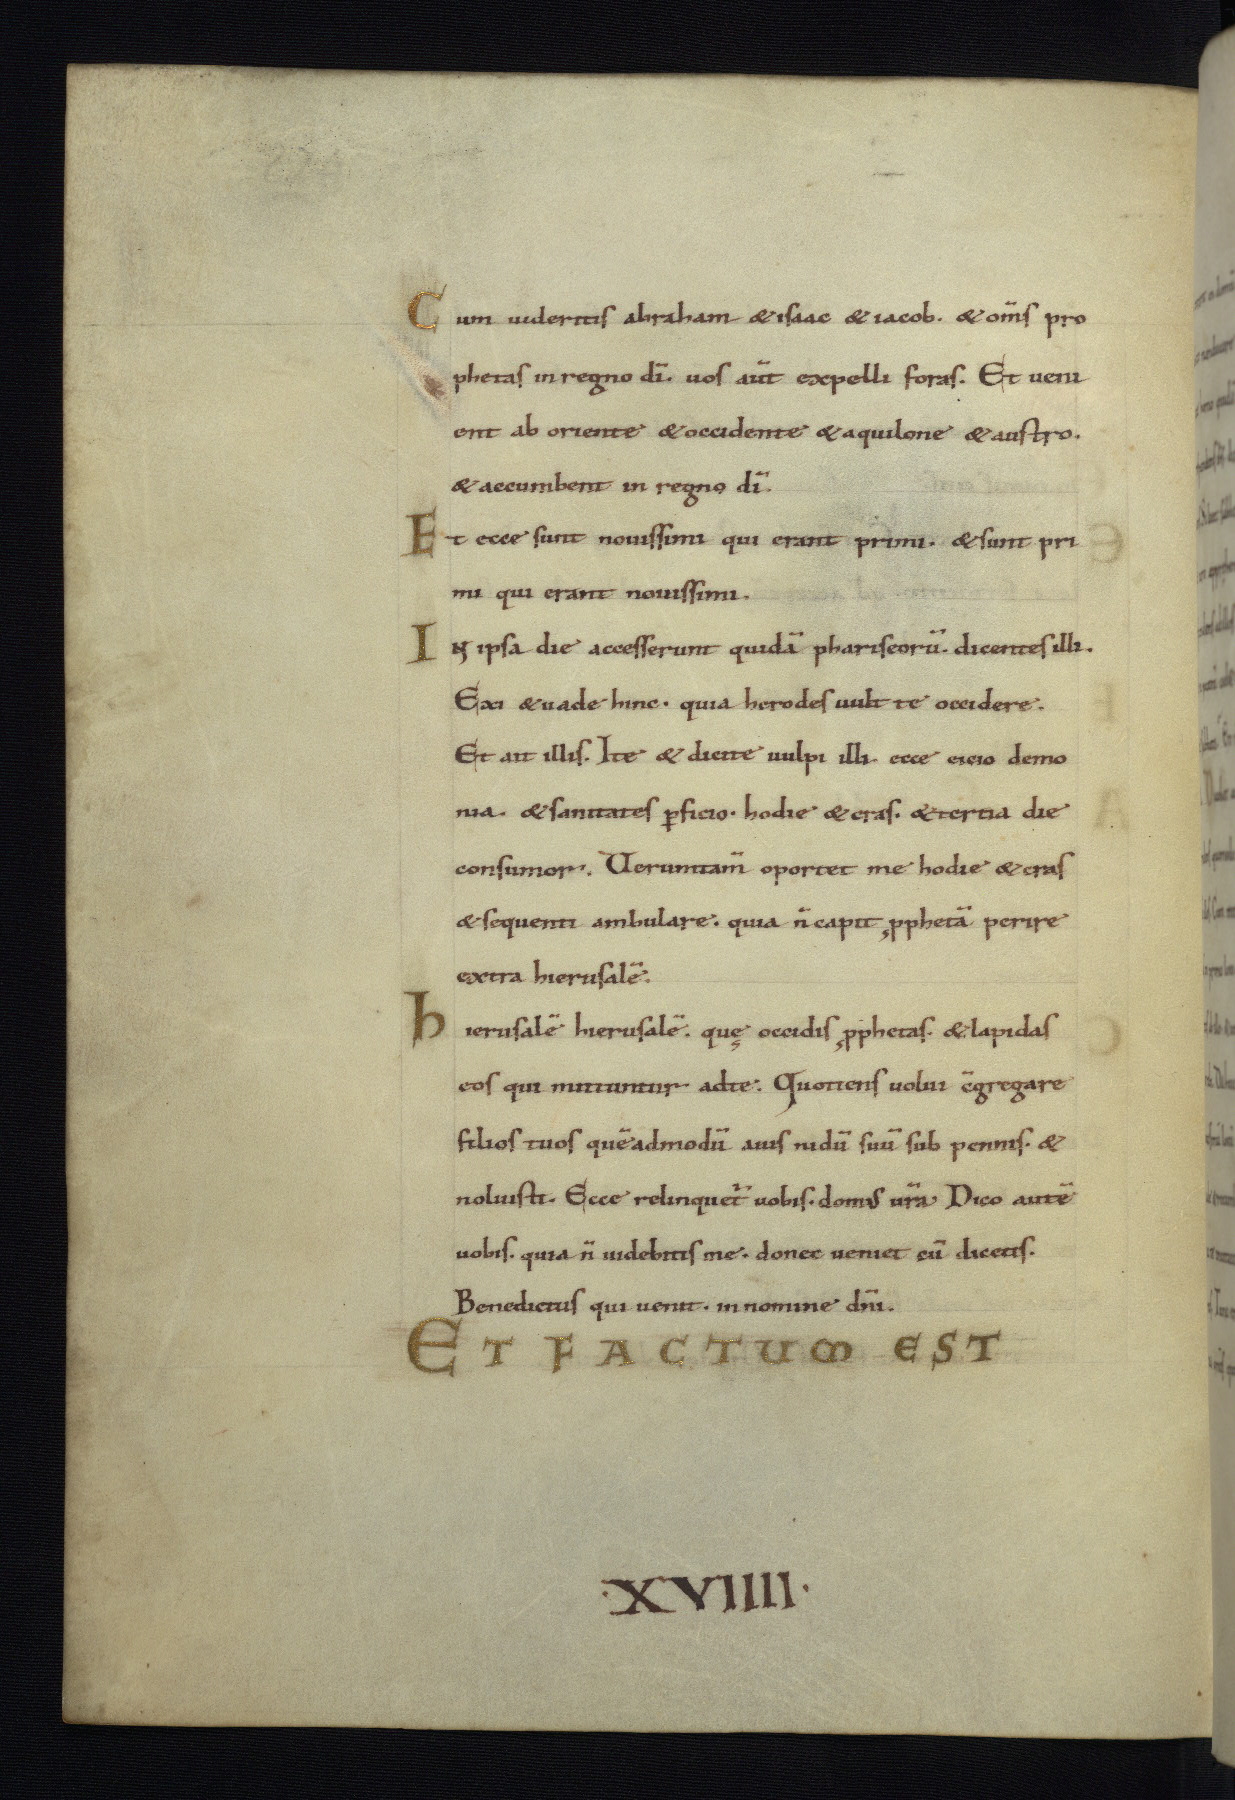 Cum uideritis abraham & isaac & iacob. & om̄s pro
phetas in regno dī. uos aūt expelli foras. Et ueni
ent ab oriente & occidente & aquilone & austro.
& accumbent in regno dī.
Et ecce sunt nouissimi qui erant primi. & sunt pri
mi qui erant nouissimi.
IN ipsa die accesserunt quidā phariseorū. dicentes illi.
Exi & uade hinc. quia herodes uult te occidere.
Et ait illis. Ite & dicite uulpi illi. ecce eicio demo
nia. & sanitates ꝑficio. hodie & cras. & tertia die
consumor. Ueruntam̄ oportet me hodie & cras
& sequenti ambulare. quia n̄ capit ꝓphetā perire
extra hierusalē.
hierusalē hierusalē. quę occidis ꝓphetas. & lapidas
eos qui mittuntur ad te. Quotiens uolui c̄gregare
filios tuos quēadmodū auis nidū suū sub pennis. &
noluisti. Ecce relinquet̄ uobis. domus ur̄a. Dico autē
uobis. quia n̄ uidebitis me. donec ueniet cū dicetis.
Benedictus qui uenit. in nomine dn̄i.
ET FACTUM EST
·XVIIII·